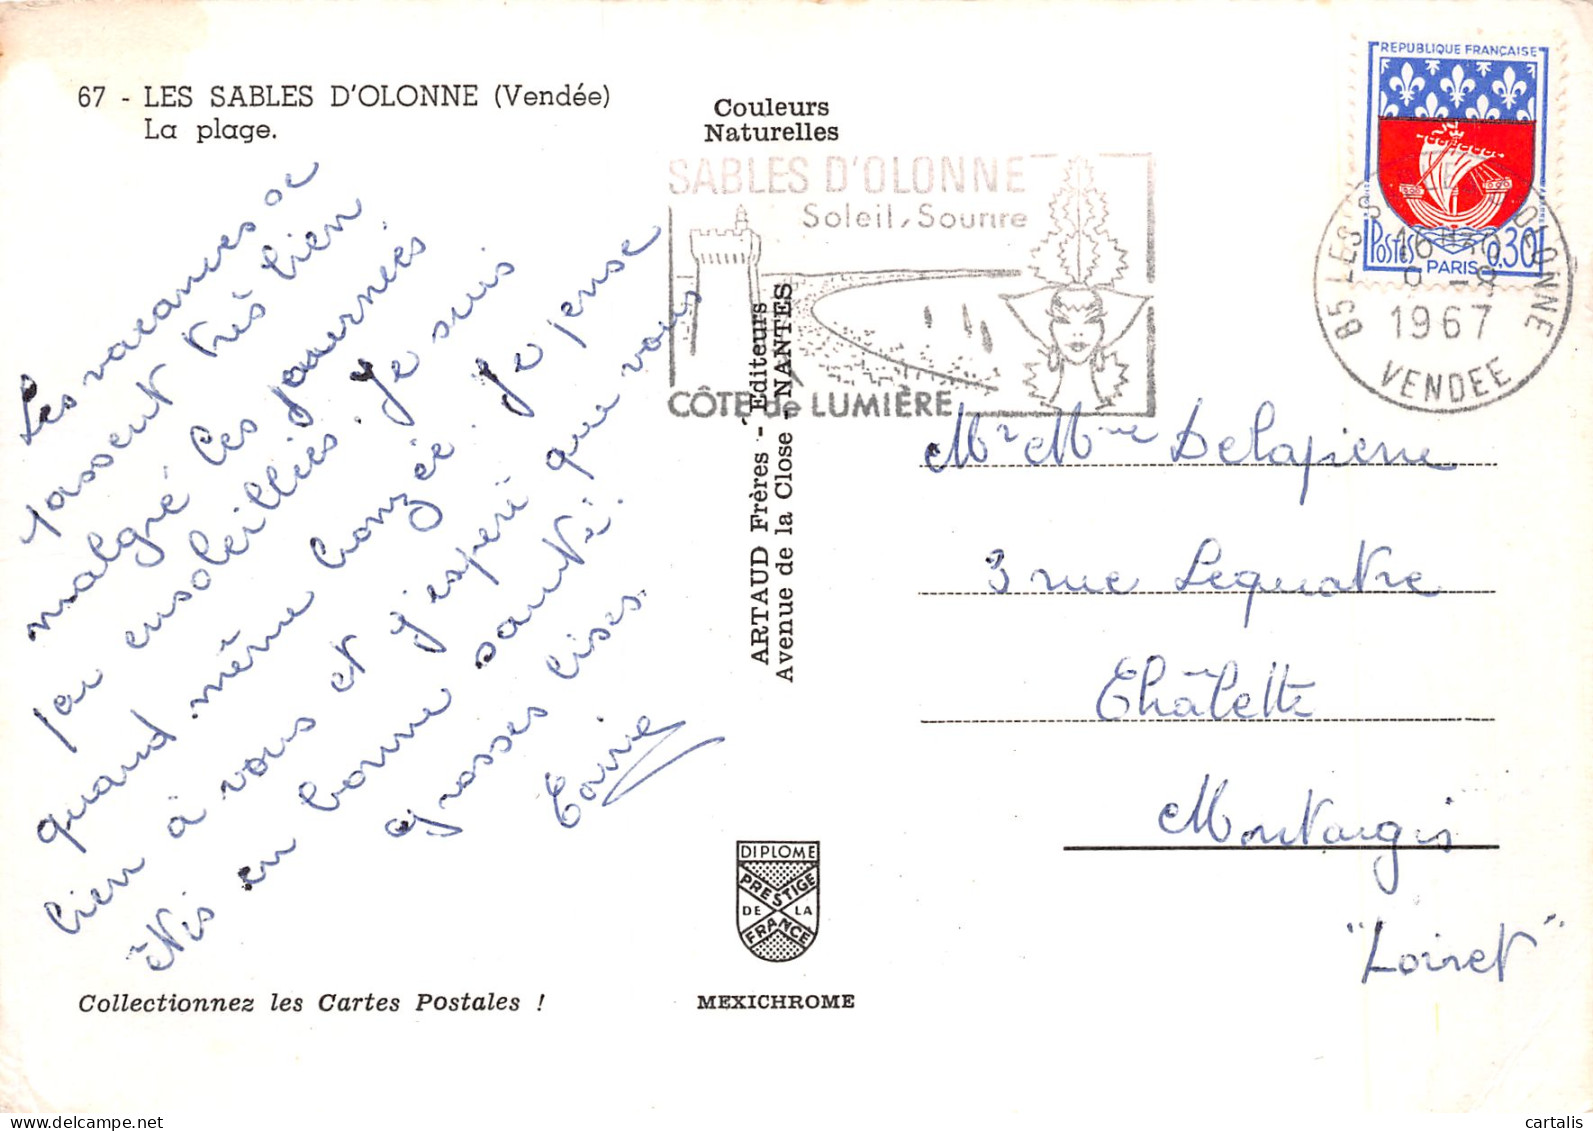 67 - LES SABLES D'OLONNE (Vendée)
La plage.
Couleurs
Naturelles
SABLES D'OLONNE
Soleil, Sourire
CÔTE de LUMIÈRE
REPUBLIQUE FRANÇAISE
Postes 0,30F
PARIS
85 LES SABLES D'OLONNE
16 H30
9 - 8
1967
VENDEE
Les vacances se
passent très bien
malgré les journées
peu ensoleillées. Je suis
quand même bronzée. Je pense
bien à vous et j'espère que vous
êtes en bonne santé.
Grosses bises.
ARTAUD Frères - Éditeurs
Avenue de la Close - NANTES
Mr Mme Delapierre
3 rue Lequatre
Châlette
Montargis
"Loiret"
DIPLOME
PRESTIGE
DE LA
FRANCE
Collectionnez les Cartes Postales !
MEXICHROME
cartalis